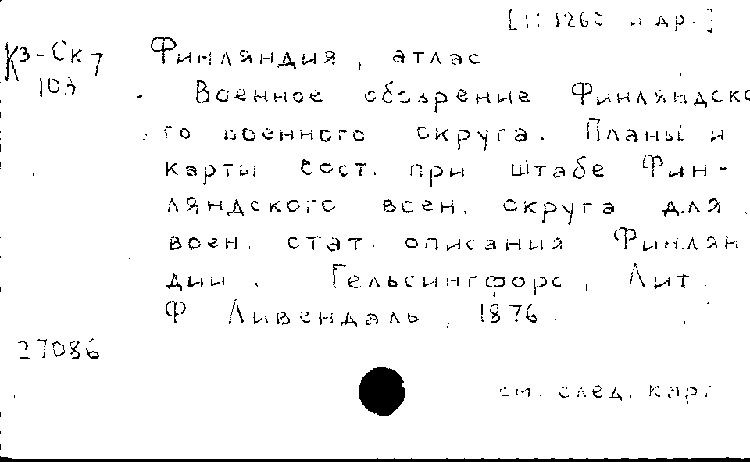 и др.]
Финляндия, атлас
Военное обозрение Финляндско
го военного округа. Планы и
карты сост. при штабе Фин-
ляндского воен. округа для
воен. стат. описания Финлян
дии. Гельсингфорс, Лит.
Ф Ливендаль, 1876.
27086
см. след. карт